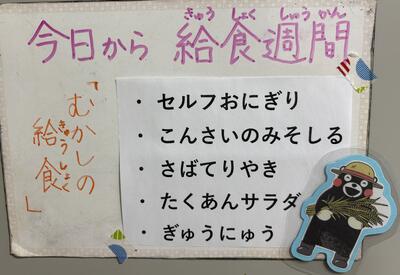 きゅうしょくしゅうかん
今日から 給食週間
「むかしの
給食」
きゅうしょく
・ セルフおにぎり
・ こんさいのみそしる
・ さばてりやき
・ たくあんサラダ
・ ぎゅうにゅう